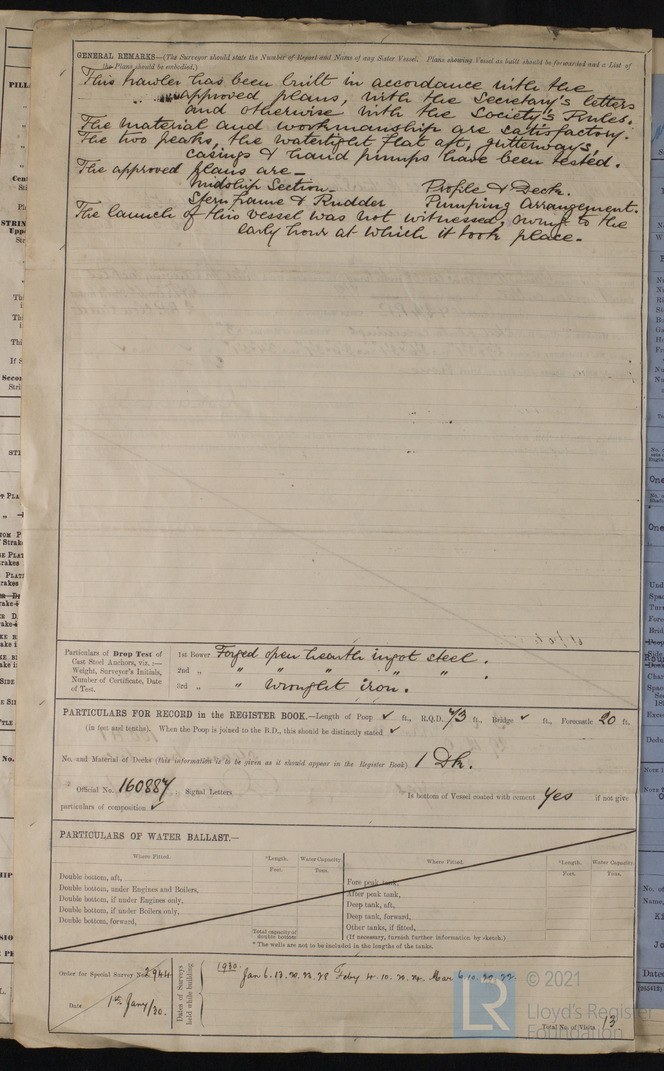 GENERAL REMARKS—(The Surveyor should state the Number of Report and Name of any Sister Vessel. Plans showing Vessel as built should be forwarded and a List of
the Plans should be embodied.)
This trawler has been built in accordance with the
approved plans, with the Secretary's letters
and otherwise with the Society's Rules.
The material and workmanship are satisfactory.
The two peaks, the watertight flat aft, gutterways,
casings & hand pumps have been tested.
The approved plans are—
Midship Section— Profile & Deck.
Sternframe & Rudder Pumping Arrangement.
The launch of this vessel was not witnessed, owing to the
early hour at which it took place.—
Particulars of Drop Test of
Cast Steel Anchors, viz. :—
Weight, Surveyor's Initials,
Number of Certificate, Date
of Test.
1st Bower Forged open hearth ingot steel.
2nd „ " " " " "
3rd „ " wrought iron.
PARTICULARS FOR RECORD in the REGISTER BOOK.—Length of Poop ✓ ft., R.Q.D. 73 ft., Bridge ✓ ft., Forecastle 20 ft.
(in feet and tenths). When the Poop is joined to the B.D., this should be distinctly stated ✓
No. and Material of Decks (this information is to be given as it should appear in the Register Book) 1 Dk.
Official No. 160887 Signal Letters Is bottom of Vessel coated with cement Yes if not give
particulars of composition ✓
PARTICULARS OF WATER BALLAST.—
Where Fitted. *Length. Water Capacity. Where Fitted. *Length. Water Capacity.
Feet. Tons. Feet. Tons.
Double bottom, aft, Fore peak tank,
Double bottom, under Engines and Boilers, After peak tank,
Double bottom, if under Engines only, Deep tank, aft,
Double bottom, if under Boilers only, Deep tank, forward,
Double bottom, forward, Other tanks, if fitted,
Total capacity of double bottom (If necessary, furnish further information by sketch.)
* The wells are not to be included in the lengths of the tanks.
Order for Special Survey No. 2944
Date 1st Jany/30.
Dates of Surveys
held while building
1930. Jan 6. 13. 20. 23. 28 Feby 4. 10. 20. 24. Mar 6. 10. 20. 22.
Total No. of Visits 13
© 2021
LR
Lloyd's Register
Foundation